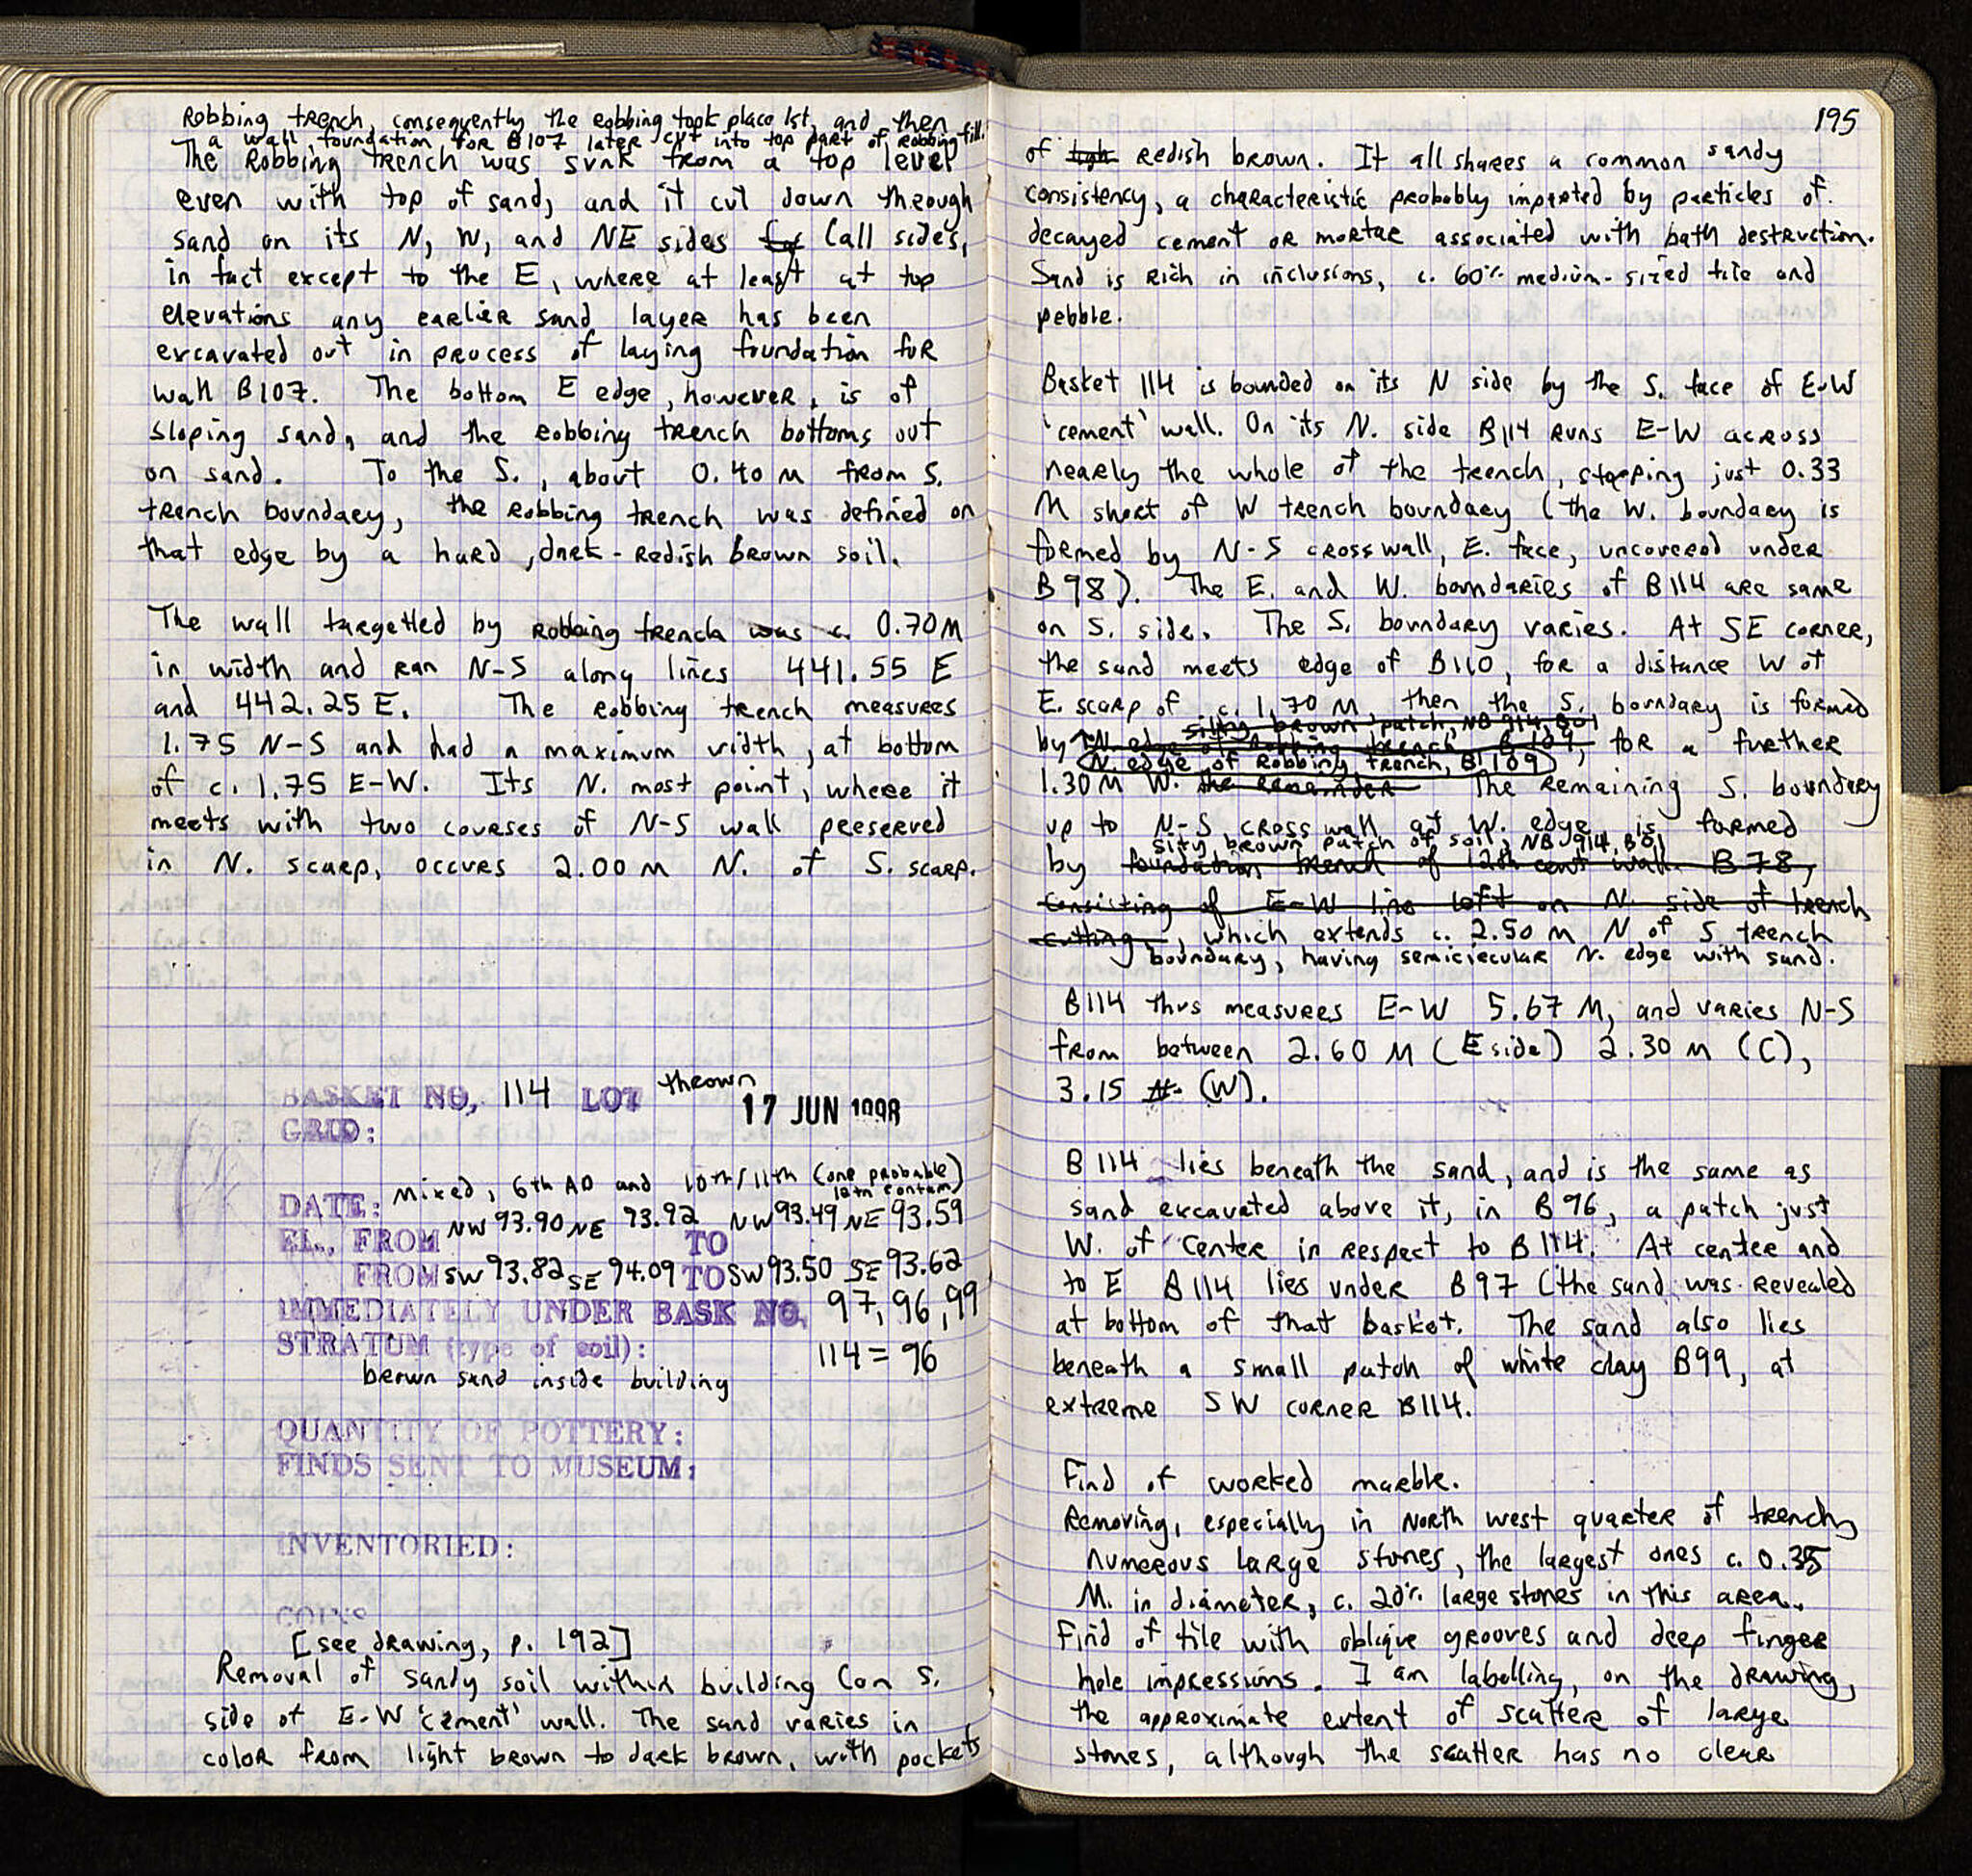 Robbing trench, consequently the robbing took place 1st, and then
a wall foundation for B107 later cut into top part of robbing fill.
The Robbing trench was sunk from a top level
even with top of sand, and it cut down through
sand on its N, W, and NE sides for (all sides,
in fact except to the E, where at least at top
elevations any earlier sand layer has been
excavated out in process of laying foundation for
wall B107. The bottom E edge, however, is of
sloping sand, and the robbing trench bottoms out
on sand. To the S., about 0.40 M from S.
trench boundary, the robbing trench was defined on
that edge by a hard, dark-redish brown soil.
The wall targetted by robbing trench was c. 0.70M
in width and ran N-S along lines 441.55 E
and 442.25 E. The robbing trench measures
1.75 N-S and had a maximum width, at bottom
of c. 1.75 E-W. Its N. most point, where it
meets with two courses of N-S wall preserved
in N. scarp, occurs 2.00 M N. of S. scarp.
BASKET NO, 114 LOT thrown
17 JUN 1998
GRID:
DATE: Mixed, 6th AD and 10th/11th (one probable)
12th contam)
EL., FROM NW 93.90 NE 93.92 TO NW 93.49 NE 93.59
FROM SW 93.82 SE 94.09 TO SW 93.50 SE 93.62
IMMEDIATELY UNDER BASK NO, 97, 96, 99
STRATUM (type of soil): 114 = 96
brown sand inside building
QUANTITY OF POTTERY:
FINDS SENT TO MUSEUM:
INVENTORIED:
COINS
[see drawing, p. 192]
Removal of sandy soil within building (on S.
side of E-W 'cement' wall. The sand varies in
color from light brown to dark brown, with pockets
195
of redish brown. It all shares a common sandy
consistency, a characteristic probably imparted by particles of
decayed cement or mortar associated with bath destruction.
Sand is rich in inclusions, c. 60% medium-sized tile and
pebble.
Basket 114 is bounded on its N side by the S. face of E-W
'cement' wall. On its N. side B114 runs E-W across
nearly the whole of the trench, stopping just 0.33
M short of W trench boundary (the W. boundary is
formed by N-S cross wall, E. face, uncovered under
B98). The E. and W. boundaries of B114 are same
on S. side. The S. boundary varies. At SE corner,
the sand meets edge of B110, for a distance W of
E. scarp of c. 1.70 M, then the S. boundary is formed
silty brown patch, NB 914, B01
by N edge of Robbing trench, B 109, for a further
N. edge of Robbing trench, B 109
1.30 M W. the remainder The remaining S. boundary
up to N-S cross wall at W. edge is formed
silty brown patch of soil, NB 914, B01
by foundation trench of 12th cent wall B78,
consisting of E-W line left on N. side of trench
cutting, which extends c. 2.50 M N of S trench
boundary, having semicircular N. edge with sand.
B114 thus measures E-W 5.67 M, and varies N-S
from between 2.60 M (E side) 2.30 M (C),
3.15 M (W).
B114 lies beneath the sand, and is the same as
sand excavated above it, in B96, a patch just
W. of center in respect to B114. At center and
to E B114 lies under B97 (the sand was revealed
at bottom of that basket. The sand also lies
beneath a small patch of white clay B99, at
extreme SW corner B114.
Find of worked marble.
Removing, especially in North west quarter of trench,
numerous large stones, the largest ones c. 0.35
M. in diameter, c. 20% large stones in this area.
Find of tile with oblique grooves and deep finger
hole impressions. I am labelling, on the drawing,
the approximate extent of scatter of large
stones, although the scatter has no clear